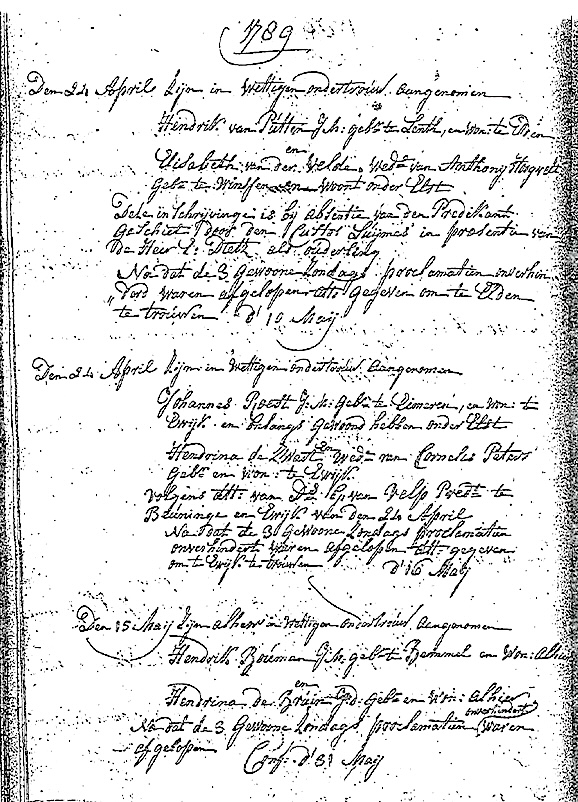 1789
Den 24 April Zijn in Wettigen ondertrouw aangenomen
Hendrik van Putten J:M: gebn te Lenth, en won: te Elden
en
Elisabeth van der Velde, Wede van Anthony
Gebn te Winssen en Woont onder Elst
Dese inschrijvinge is by absentie van den Predikant
Geschiet door den Custos Suijmes in præsentie van
De Heer als ouderling
Na dat de 3 Gewoone Zondags proclamatien onverhin
„derd waren afgelopen atts gegeven om te Elden
te trouwen d' 10 Maij
Den 24 April Zijn in Wettigen ondertrouw aangenomen
Johannes Roest J:M: gebn te Eimeren, en won: te
Ewijk en belangs gewoond hebben onder Elst
en
Hendrina de Zwart Wede van Cornelis Peters
Gebn en won: te Ewijk
Volgens att: van Ds van Velp Predt te
Beuninge en Ewijk van den 24 April
Na dat de 3 Gewoone Zondags proclamatien
onverhindert waren afgelopen att: gegeven
om te Ewijk te trouwen d' 16 Maij
Den 15 Maij Zijn alhier in Wettigen ondertrouw aangenomen
Hendrik Bouman J:M: gebn te Bemmel en Won: alhier
en
Hendrina de Bruin J:d: Gebn en Won: alhier
onverhindert
Na dat de 3 Gewoone Zondags proclamatien waren
afgelopen Conf: d' 31 Maij